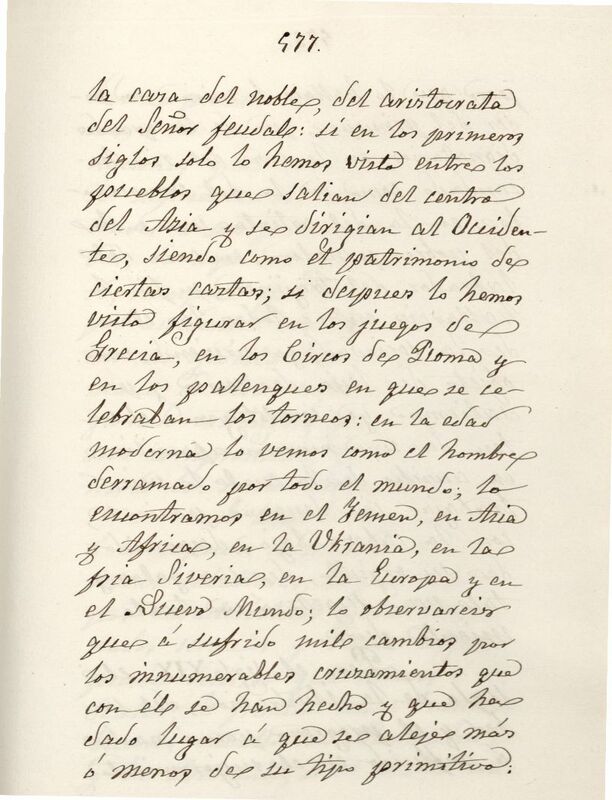 577.
la casa del noble, del aristocrata
del Señor feudal: si en los primeros
siglos solo lo hemos visto entre los
pueblos que salian del centro
del Asia y se dirigian al Occiden-
te, siendo como el patrimonio de
ciertas castas; si depues lo hemos
visto figurar en los juegos de
Grecia, en los Circos de Roma y
en los palenques en que se ce-
lebraban los torneos: en la edad
moderna lo vemos como el hombre
derramado por todo el mundo; lo
encontramos en el Yemen, en Asia
y Africa, en la Ukrania, en la
fria Siveria, en la Europa y en
el Nuevo Mundo; lo observareis
que á sufrido mil cambios por
los innumerables cruzamientos que
con él se han hecho y que ha
dado lugar á que se aleje más
ó menos de su tipo primitivo: